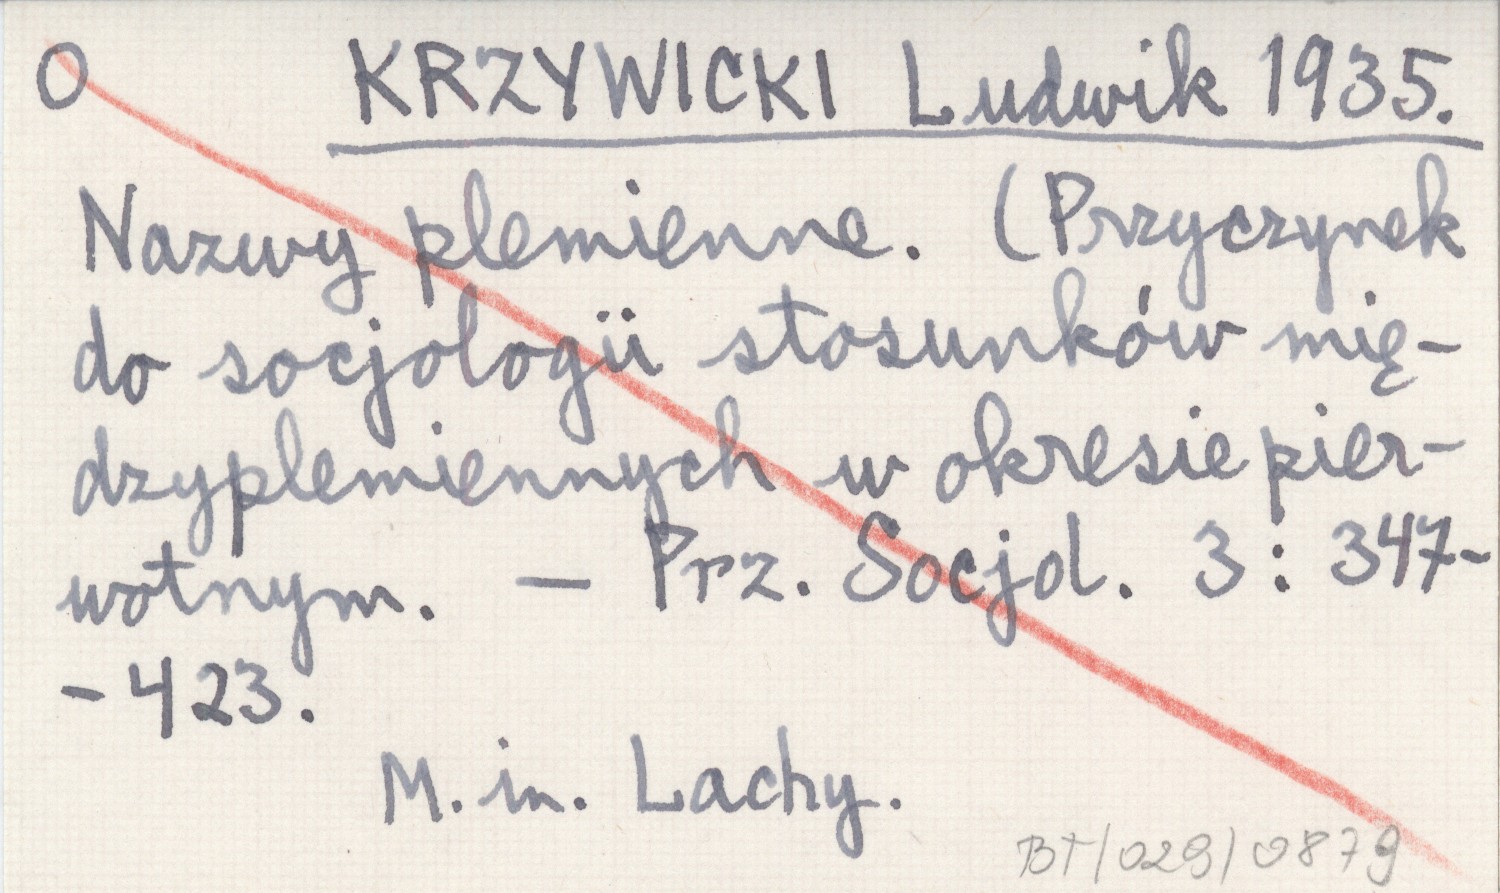 O KRZYWICKI Ludwik 1935.
Nazwy plemienne. (Przyczynek
do socjologii stosunków mię-
dzyplemiennych w okresie pier-
wotnym. — Prz. Socjol. 3 : 347-
-423.
M. in. Lachy.
BT/029/0879